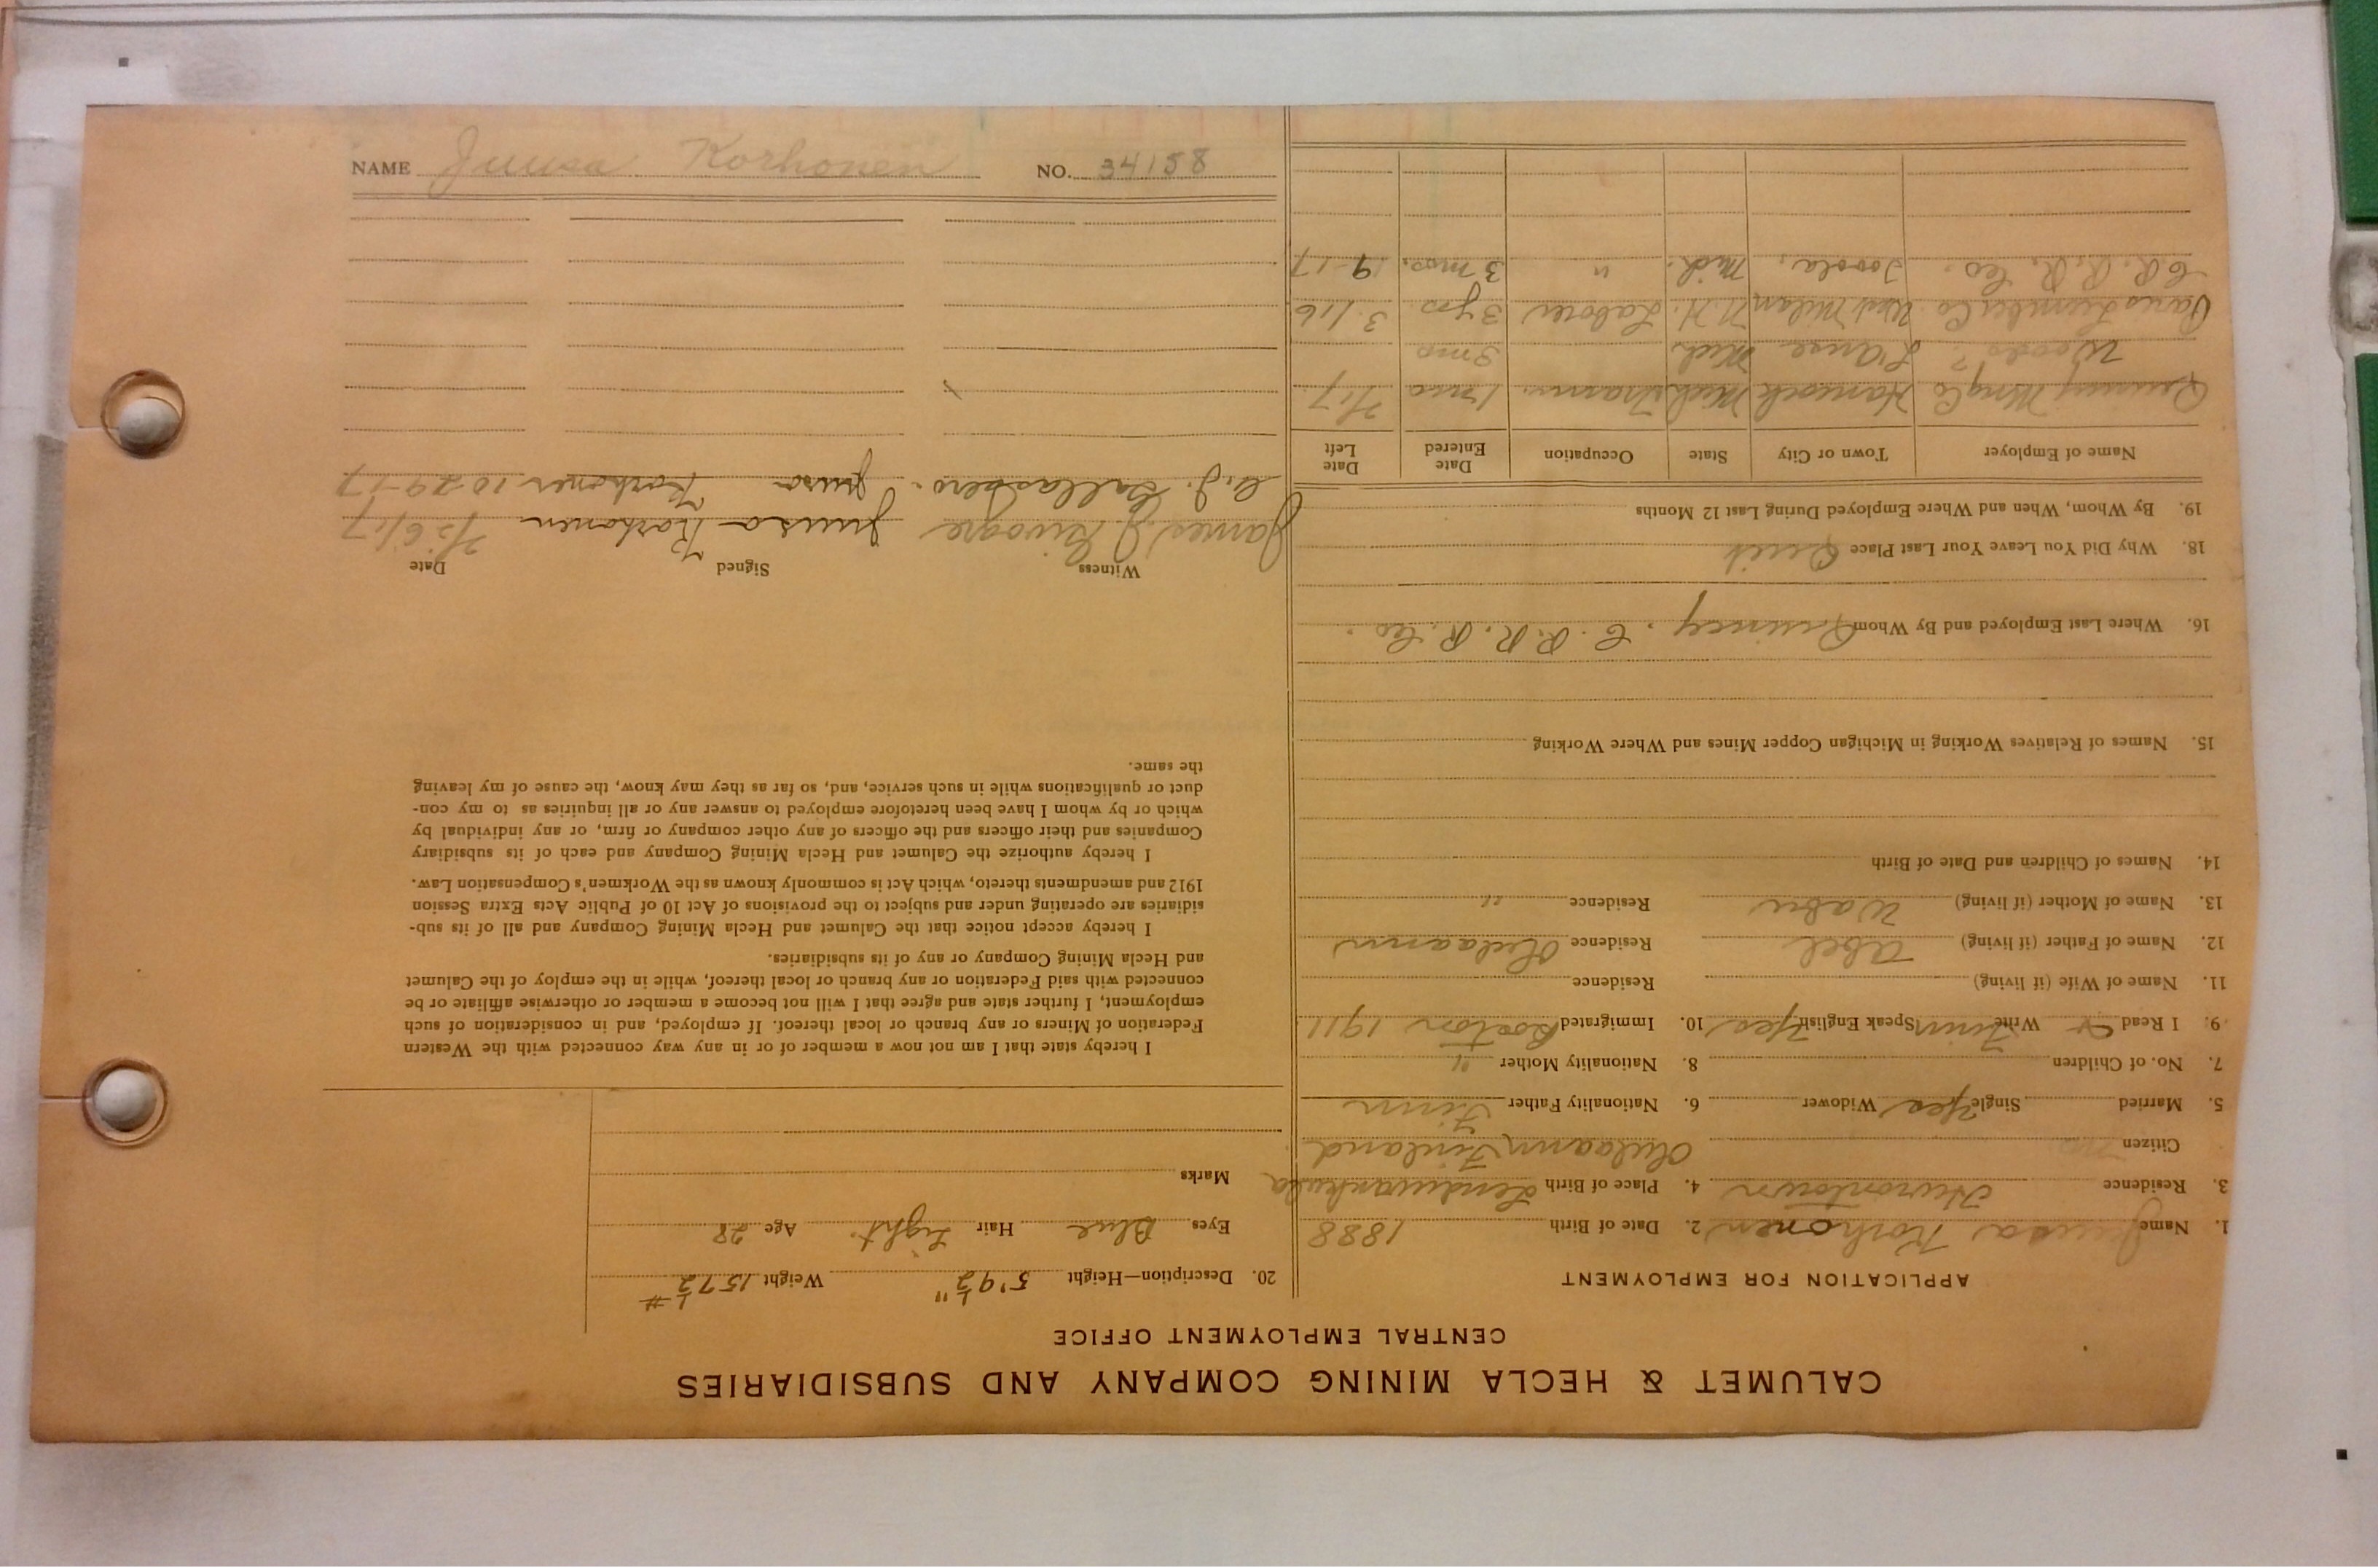 CALUMET & HECLA MINING COMPANY AND SUBSIDIARIES
CENTRAL EMPLOYMENT OFFICE
APPLICATION FOR EMPLOYMENT
1. Name Juusa Korhonen 2. Date of Birth 1888
3. Residence Hurontown 4. Place of Birth
Citizen Finland
5. Married Single Yes Widower 6. Nationality Father Finn
7. No. of Children 8. Nationality Mother "
9. I Read & Write Finn Speak English Yes 10. Immigrated Boston 1911
11. Name of Wife (if living) Residence
12. Name of Father (if living) Abel Residence
13. Name of Mother (if living) Residence "
14. Names of Children and Date of Birth
15. Names of Relatives Working in Michigan Copper Mines and Where Working
16. Where Last Employed and By Whom Quincy. C. R. R. R. Co.
18. Why Did You Leave Your Last Place Quit
19. By Whom, When and Where Employed During Last 12 Months
Name of Employer Town or City State Occupation Date Entered Date Left
Quincy Mng Co Hancock Mich Tramr. 1 mo 7/17
Woods? L'Anse Mich 3 mo
Paris Lumber Co West Milan N.H. Laborer 3 yrs. 3/16
C. R. R. R. Co. Toivola, Mich. " 3 mos. 9-17
20. Description—Height 5'9½" Weight 157½ #
Eyes Blue Hair Light. Age 28
Marks
I hereby state that I am not now a member of or in any way connected with the Western
Federation of Miners or any branch or local thereof. If employed, and in consideration of such
employment, I further state and agree that I will not become a member or otherwise affiliate or be
connected with said Federation or any branch or local thereof, while in the employ of the Calumet
and Hecla Mining Company or any of its subsidiaries.
I hereby accept notice that the Calumet and Hecla Mining Company and all of its sub-
sidiaries are operating under and subject to the provisions of Act 10 of Public Acts Extra Session
1912 and amendments thereto, which Act is commonly known as the Workmen's Compensation Law.
I hereby authorize the Calumet and Hecla Mining Company and each of its subsidiary
Companies and their officers and the officers of any other company or firm, or any individual by
which or by whom I have been heretofore employed to answer any or all inquiries as to my con-
duct or qualifications while in such service, and, so far as they may know, the cause of my leaving
the same.
Witness Signed Date
James J. Juusa Korhonen 7/26/17
C. J. Juusa Korhonen 10-29-17
NAME Juusa Korhonen NO. 34158